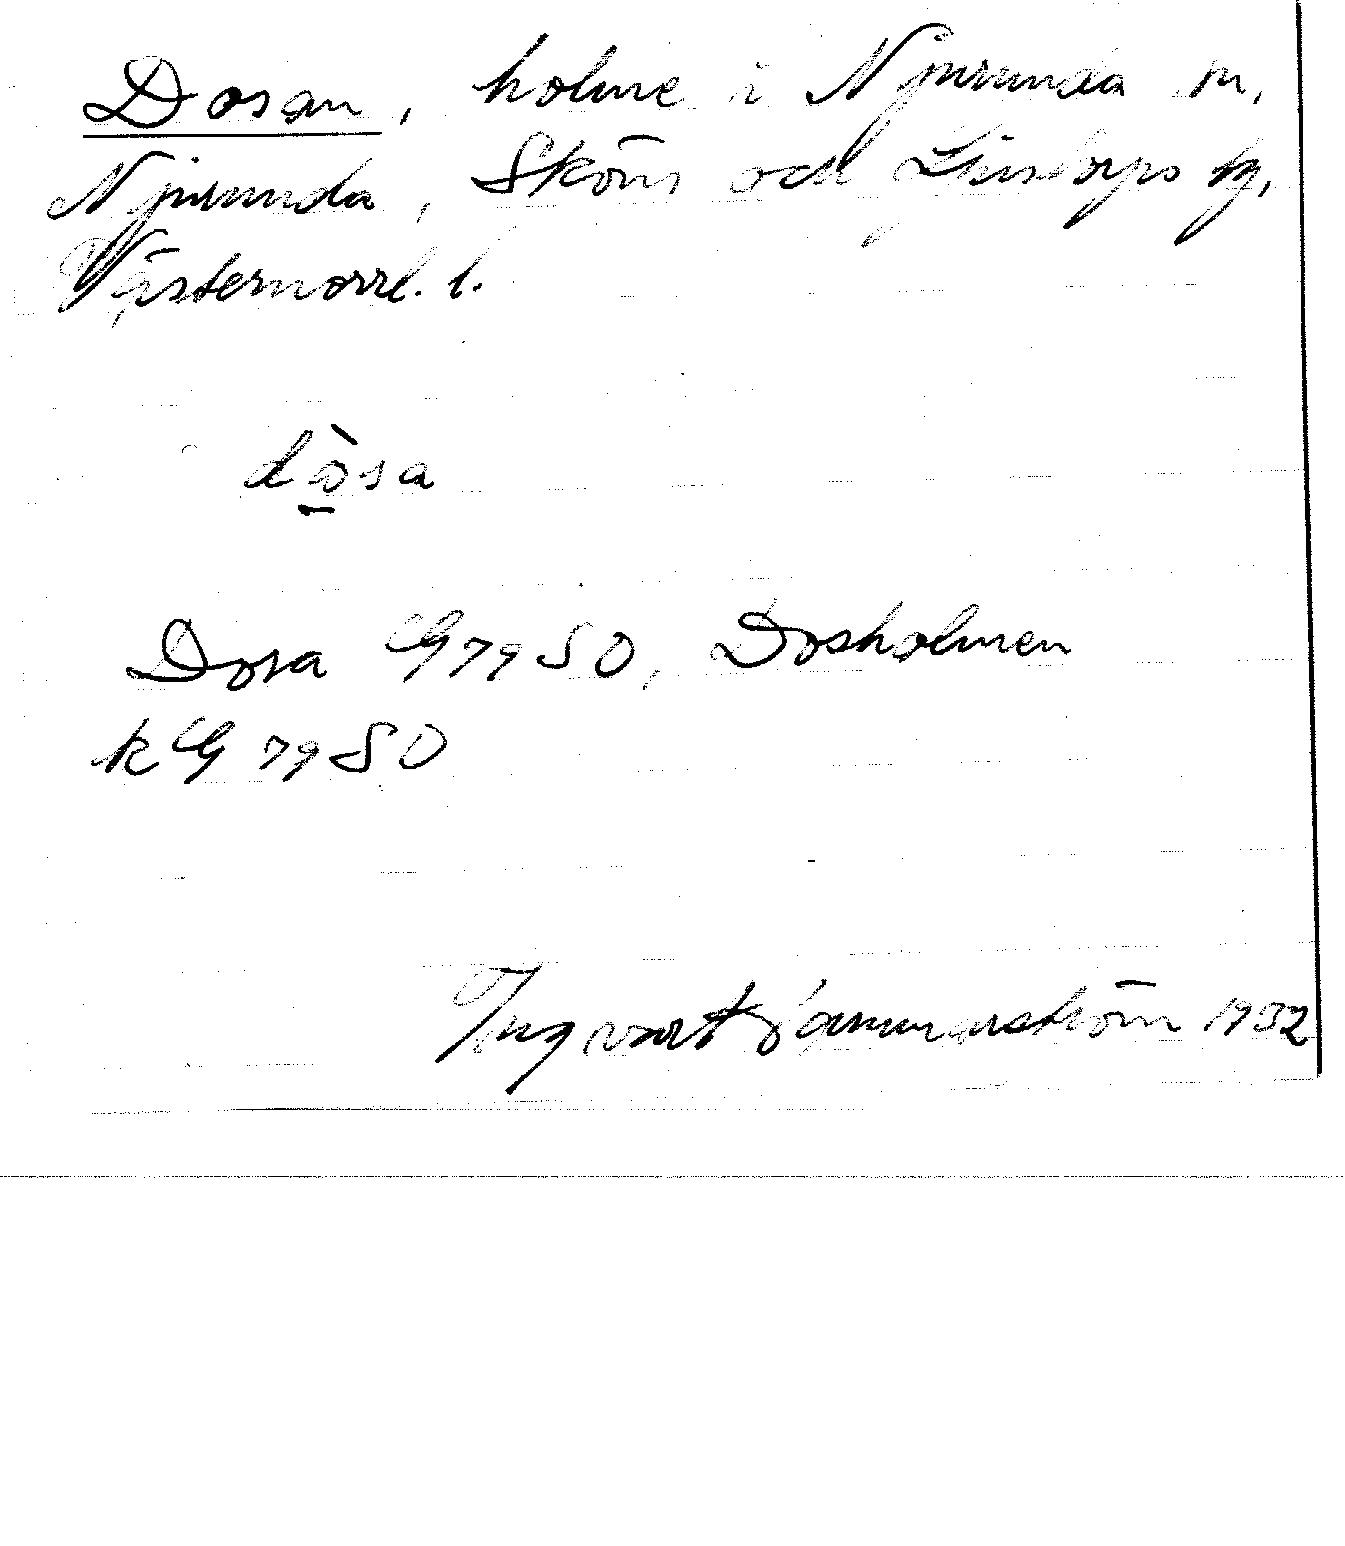 Dosan, holme i Njurunda sn,
Njurunda, Sköns och Ljustorps tg,
Västernorrl. l.
dò̱sa
Dosa G79SO, Dosholmen
kG79SO
Ingvart Jämmerström 1932